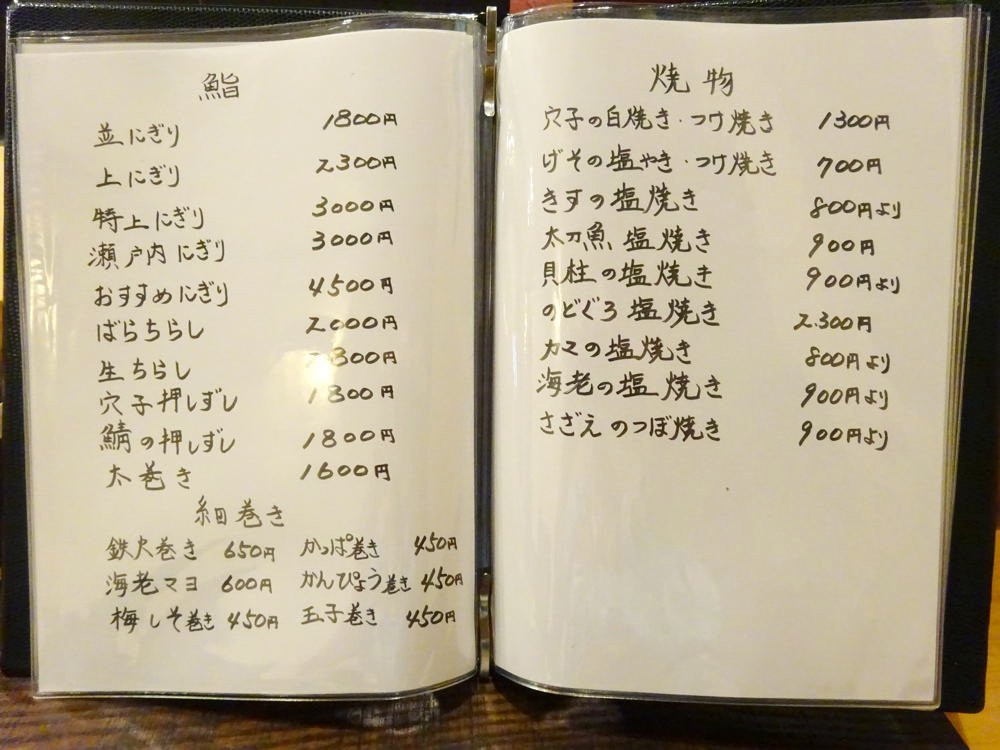 鮨
並にぎり 1800円
上にぎり 2300円
特上にぎり 3000円
瀬戸内にぎり 3000円
おすすめにぎり 4500円
ばらちらし 2000円
生ちらし 800円
穴子押しずし 1800円
鯖の押しずし 1800円
太巻き 1600円
細巻き
鉄火巻き 650円 かっぱ巻き 450円
海老マヨ 600円 かんぴょう巻き 450円
梅しそ巻き 450円 玉子巻き 450円
焼物
穴子の白焼き・つけ焼き 1300円
げその塩やき・つけ焼き 700円
きすの塩焼き 800円より
太刀魚塩焼き 900円
貝柱の塩焼き 900円より
のどぐろ塩焼き 2.300円
カマの塩焼き 800円より
海老の塩焼き 900円より
さざえのつぼ焼き 900円より